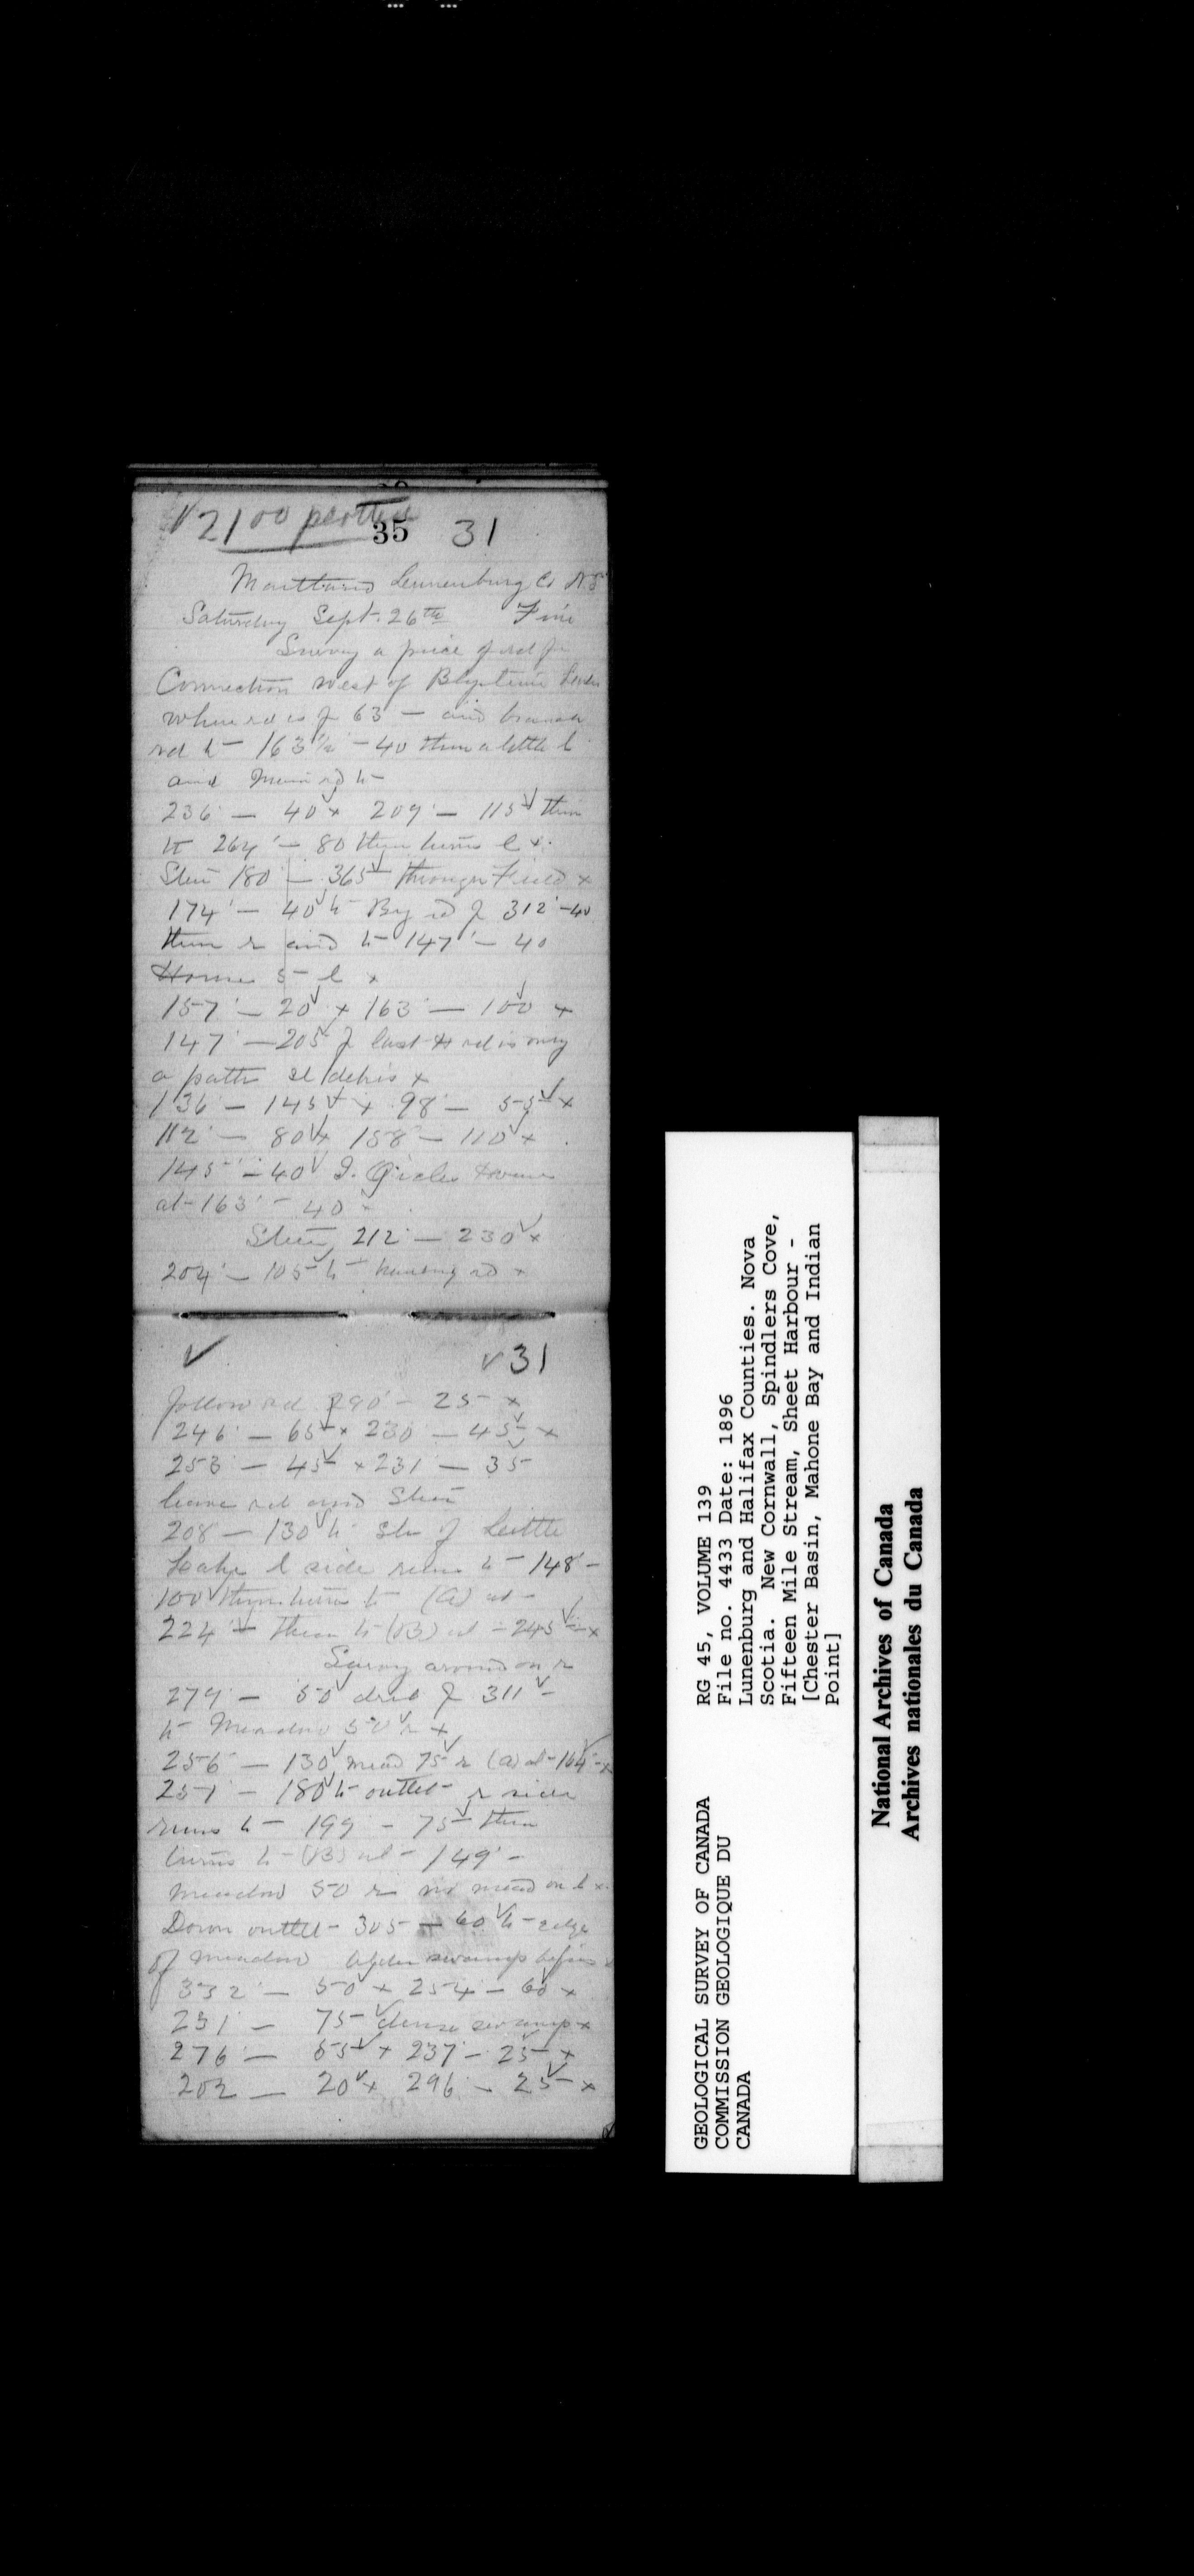 √ 2100
35 31
Lunenburg Co NS
Saturday Sept. 26th Fine
Survey a piece of rd fr
Connection west of
where rd is f 63 — and branch
rd h— 163½ — 40 then a little l
and main rd h—
236 — 40√ x 209 — 115√ then
h 264 — 80 then turns l x
180 — 365√ through Field x
174 — 40√ h By rd f 312 — 40
then r and h— 147 — 40
House 5— l x
157 — 20√ x 163 — 100√ x
147 — 205√ f last rd is only
a path debris x
136 — 145√ x 98 — 55√ x
112 — 80√ x 158 — 110√ x
145 — 40√ House
at 163 — 40 x
212 — 230√ x
204 — 105√ h rd x
√ √31
follow rd 290 — 25 x
246 — 65√ x 230 — 45√ x
253 — 45√ x 231 — 35√
leave rd and
208 — 130√ h of Little
Lake l side runs h — 148 —
100√ then turns h (A) at —
224 — Then h (B) at — 245√ x
Survey around on r
279 — 50√ f 311 —
h Meadow 50√ r x
256 — 130√ mead 75√ r (A) at 164 — x
257 — 180√ h outlet r side
runs h — 199 — 75√ then
turns h (B) at — 149 —
meadow 50 r no mead on l x
Down outlet — 305 — 60√ h edge
of meadow swamp begins x
332 — 50√ x 254 — 60√ x
231 — 75√ dense swamp x
276 — 55√ x 237 — 25√ x
202 — 20√ x 296 — 25√ x
GEOLOGICAL SURVEY OF CANADA
COMMISSION GEOLOGIQUE DU
CANADA
RG 45, VOLUME 139
File no. 4433 Date: 1896
Lunenburg and Halifax Counties. Nova
Scotia. New Cornwall, Spindlers Cove,
Fifteen Mile Stream, Sheet Harbour -
[Chester Basin, Mahone Bay and Indian
Point]
National Archives of Canada
Archives nationales du Canada